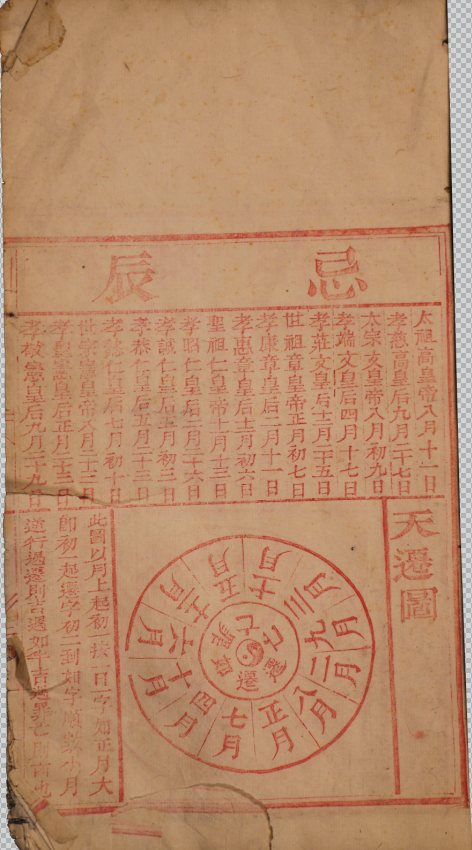 忌辰
太祖高皇帝八月十一日
孝慈高皇后九月二十七日
太宗文皇帝八月初九日
孝端文皇后四月十七日
孝莊文皇后十二月二十五日
世祖章皇帝正月初七日
孝康章皇后二月十一日
孝惠章皇后十二月初六日
聖祖仁皇帝十一月十三日
孝昭仁皇后二月二十六日
孝誠仁皇后五月初三日
孝恭仁皇后五月二十三日
孝懿仁皇后七月初十日
世宗憲皇帝八月二十三日
孝聖憲皇后正月二十三日
孝敬憲皇后九月二十九日
天遷圖
正月
八月
二月
九月
三月
十二月
五月
十一月
六月
十月
四月
七月
遷
此圖以月上起初一按一日一字如正月大
即初一起遷字初二到如字
逆行遇遷則吉遇如平吉